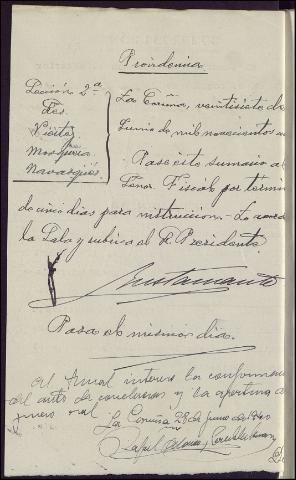 Providencia
Sección 2ª
Vieites
Mosquera
Navasqués
La Coruña, veintisiete de
Junio de mil novecientos
Pase este sumario al
Señor Fiscal por termin
de cinco dias para instruccion. Lo acordó
la Sala y rubrica el Sr. Presidente.
Bustamante
Pasa el mismo dia.
el Fiscal interesa la confirma
del auto de conclusion y la apertura d
juicio oral
La Coruña 28 de Junio de 1940
Rafael